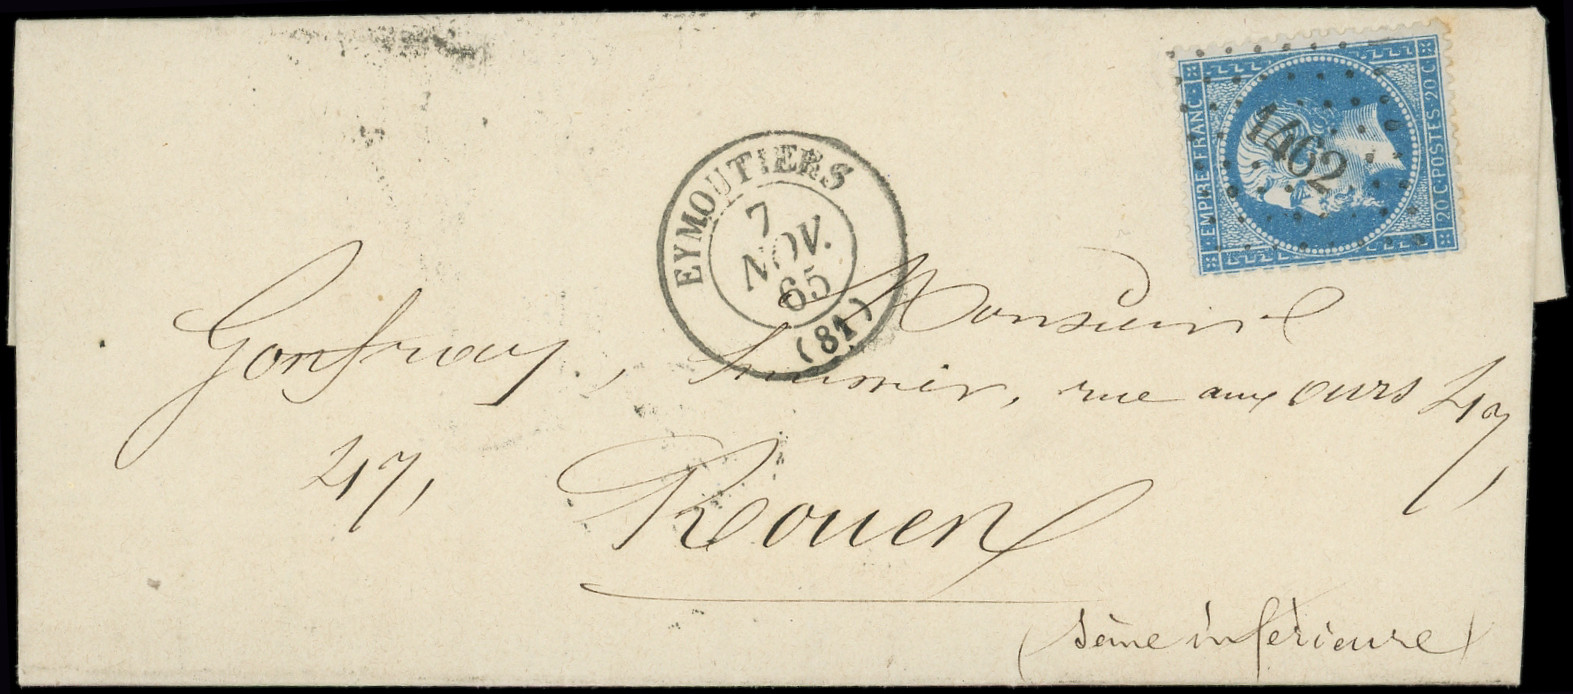 EMPIRE FRANC
20 C POSTES 20 C
1462
EYMOUTIERS
7
NOV.
65
(81)
Monsieur
Gonfray, rue aux ours 47,
47,
Rouen
(Seine inférieure)